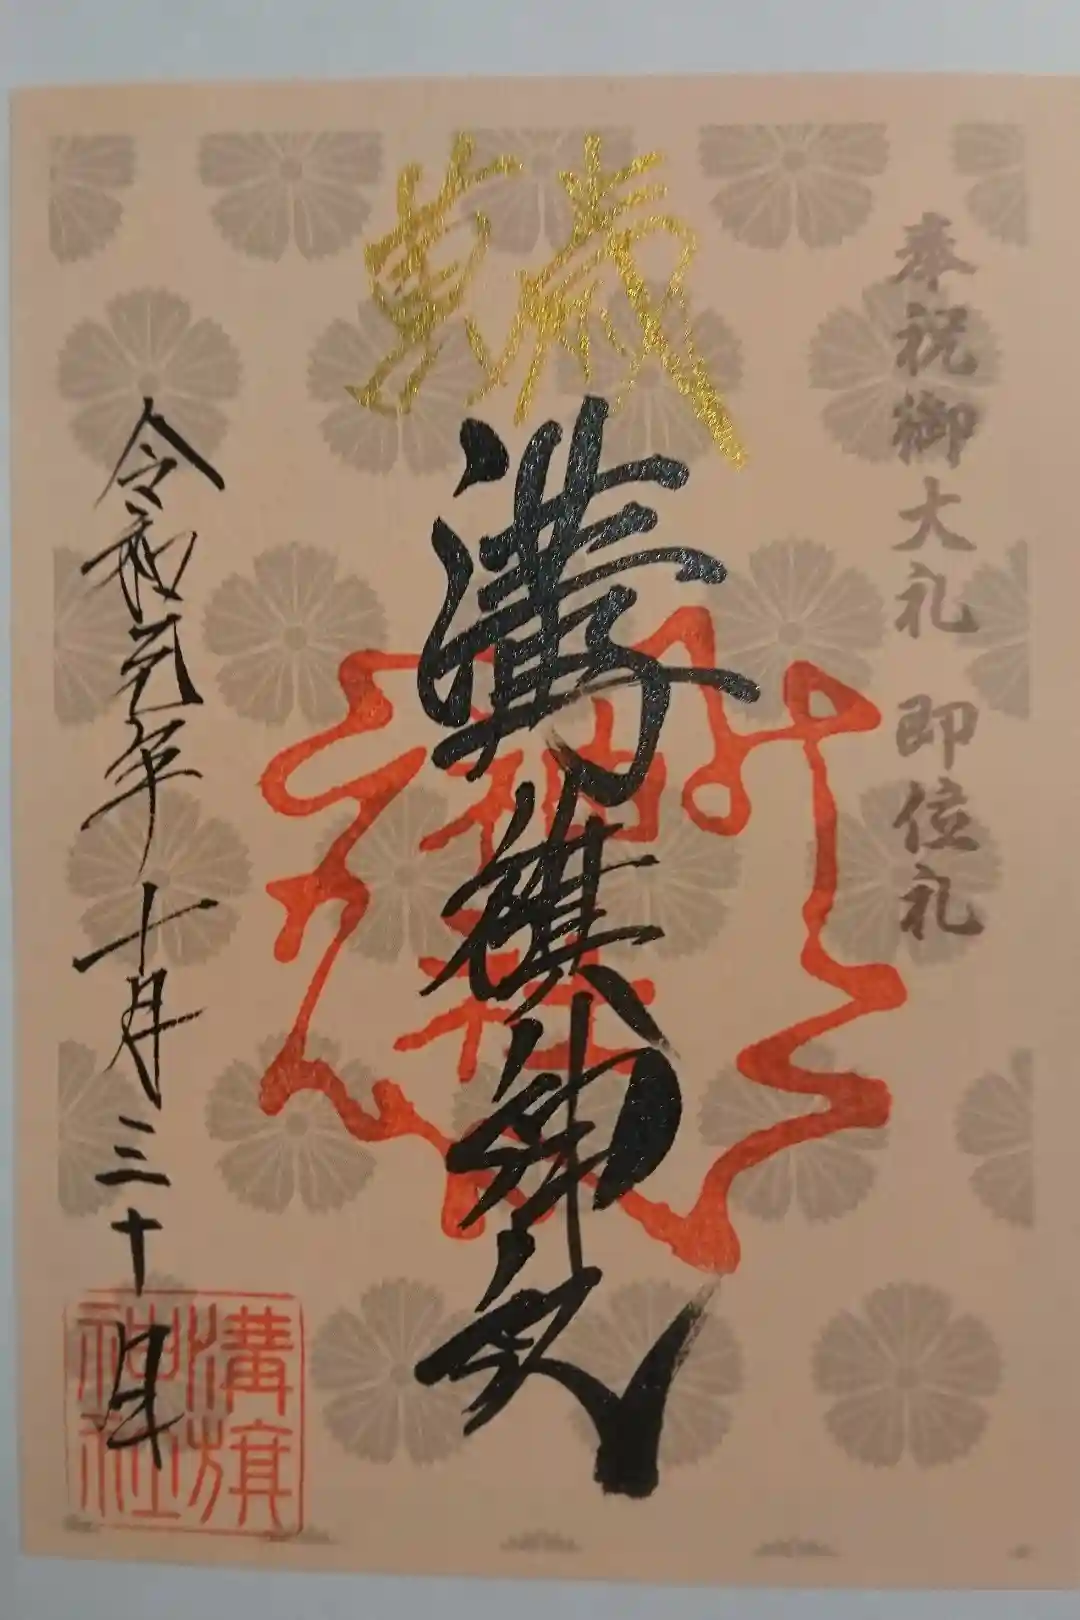 奉祝御大礼 即位礼
溝旗神社
神社
令和元年十月三十日
溝旗
神社